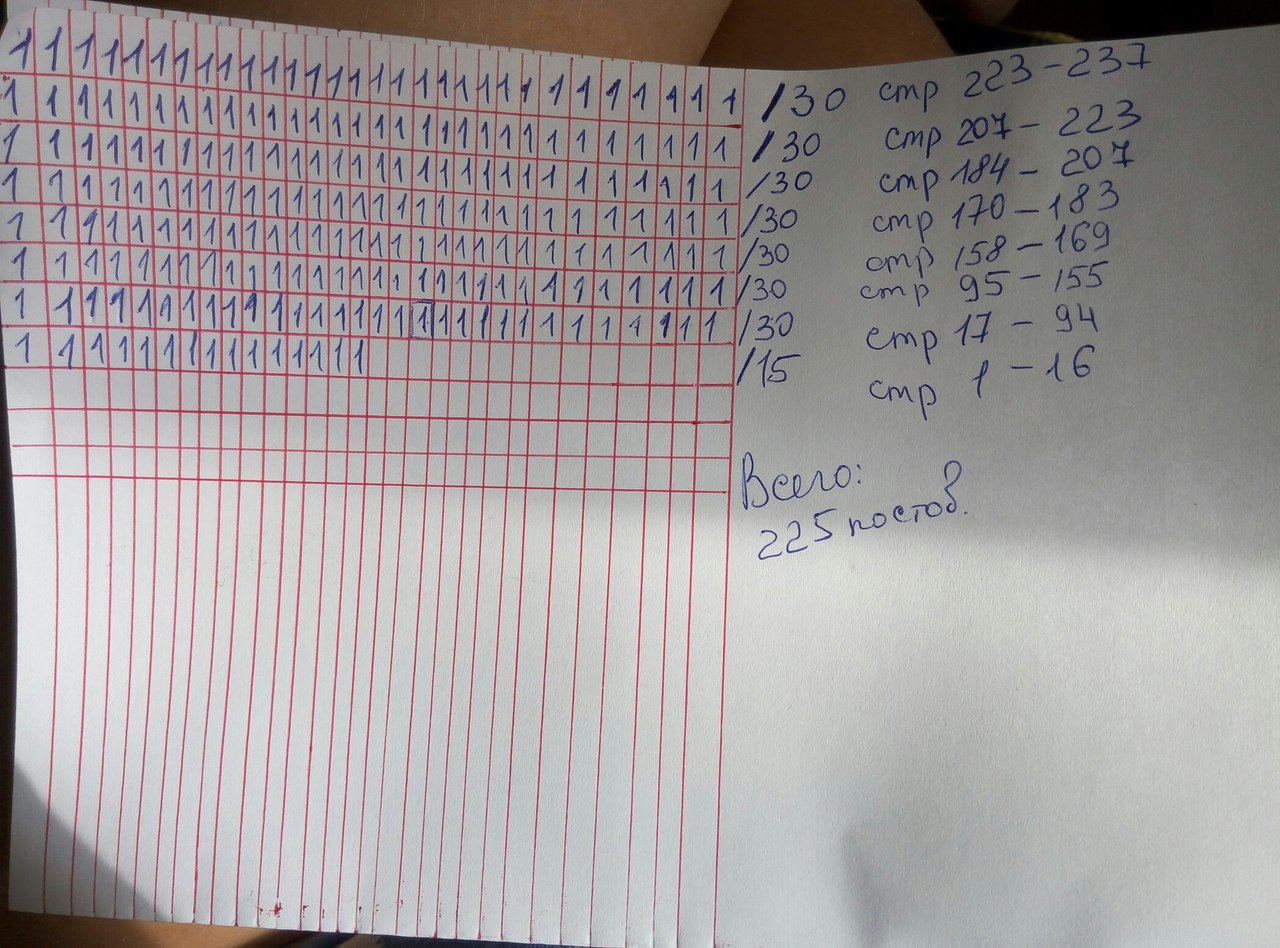 1 1 1 1 1 1 1 1 1 1 1 1 1 1 1 1 1 1 1 1 1 1 1 1 1 1 1 1 1 1 /30 стр 223-237
1 1 1 1 1 1 1 1 1 1 1 1 1 1 1 1 1 1 1 1 1 1 1 1 1 1 1 1 1 1 /30 стр 207-223
1 1 1 1 1 1 1 1 1 1 1 1 1 1 1 1 1 1 1 1 1 1 1 1 1 1 1 1 1 1 /30 стр 184-207
1 1 1 1 1 1 1 1 1 1 1 1 1 1 1 1 1 1 1 1 1 1 1 1 1 1 1 1 1 1 /30 стр 170-183
1 1 1 1 1 1 1 1 1 1 1 1 1 1 1 1 1 1 1 1 1 1 1 1 1 1 1 1 1 1 /30 стр 158-169
1 1 1 1 1 1 1 1 1 1 1 1 1 1 1 1 1 1 1 1 1 1 1 1 1 1 1 1 1 1 /30 стр 95-155
1 1 1 1 1 1 1 1 1 1 1 1 1 1 1 1 1 1 1 1 1 1 1 1 1 1 1 1 1 1 /30 стр 17-94
1 1 1 1 1 1 1 1 1 1 1 1 1 1 1 /15 стр 1-16
Всего:
225 постов.